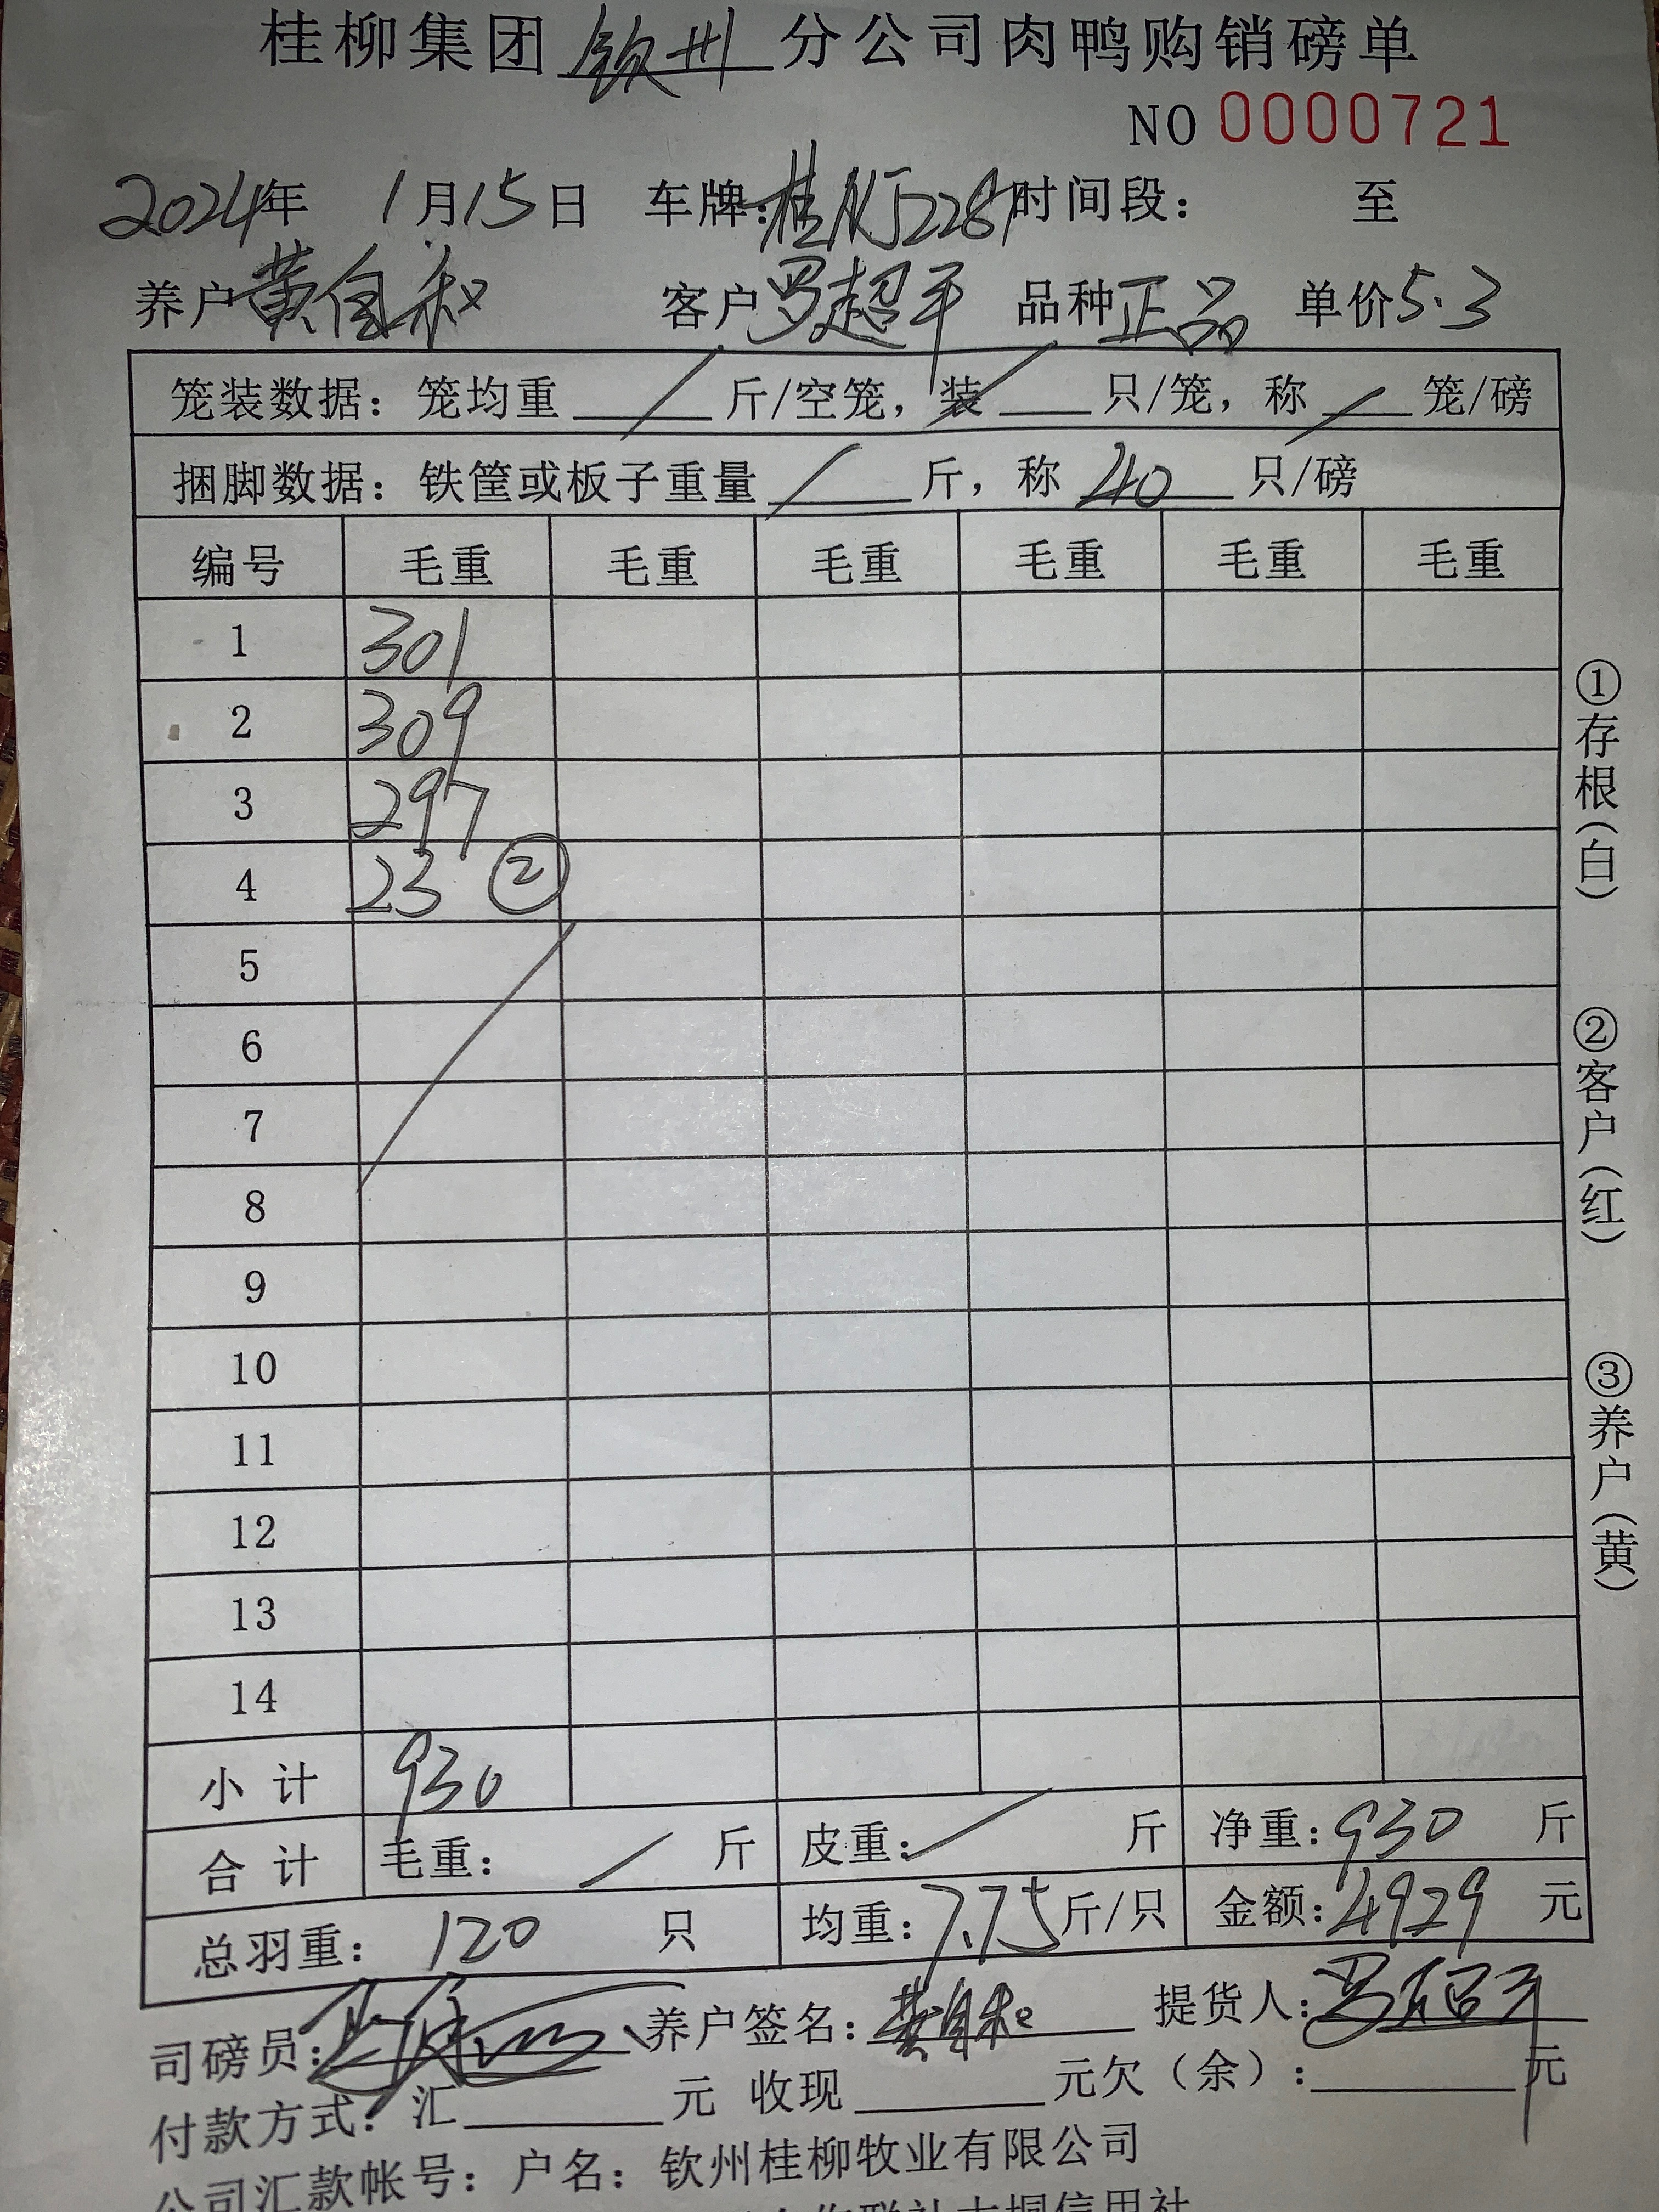 桂柳集团 钦州 分公司肉鸭购销磅单
NO 0000721
2024年 1月15日 车牌:桂NJ2287 时间段: 至
养户 黄自权 客户 罗超平 品种 正品 单价 5.3
笼装数据: 笼均重 / 斤/空笼, 装 / 只/笼, 称 / 笼/磅
捆脚数据: 铁筐或板子重量 / 斤, 称 40 只/磅
编号 毛重 毛重 毛重 毛重 毛重 毛重
1 301
2 309
3 297
4 23 ②
5
6
7
8
9
10
11
12
13
14
小计 930
合计 毛重: / 斤 皮重: / 斤 净重: 930 斤
总羽重: 120 只 均重: 7.75 斤/只 金额: 4929 元
司磅员: 养户签名: 黄自权 提货人: 罗超平
付款方式: 汇 元 收现 元欠(余): 元
公司汇款帐号: 户名: 钦州桂柳牧业有限公司
信用社
①存根(白)
②客户(红)
③养户(黄)